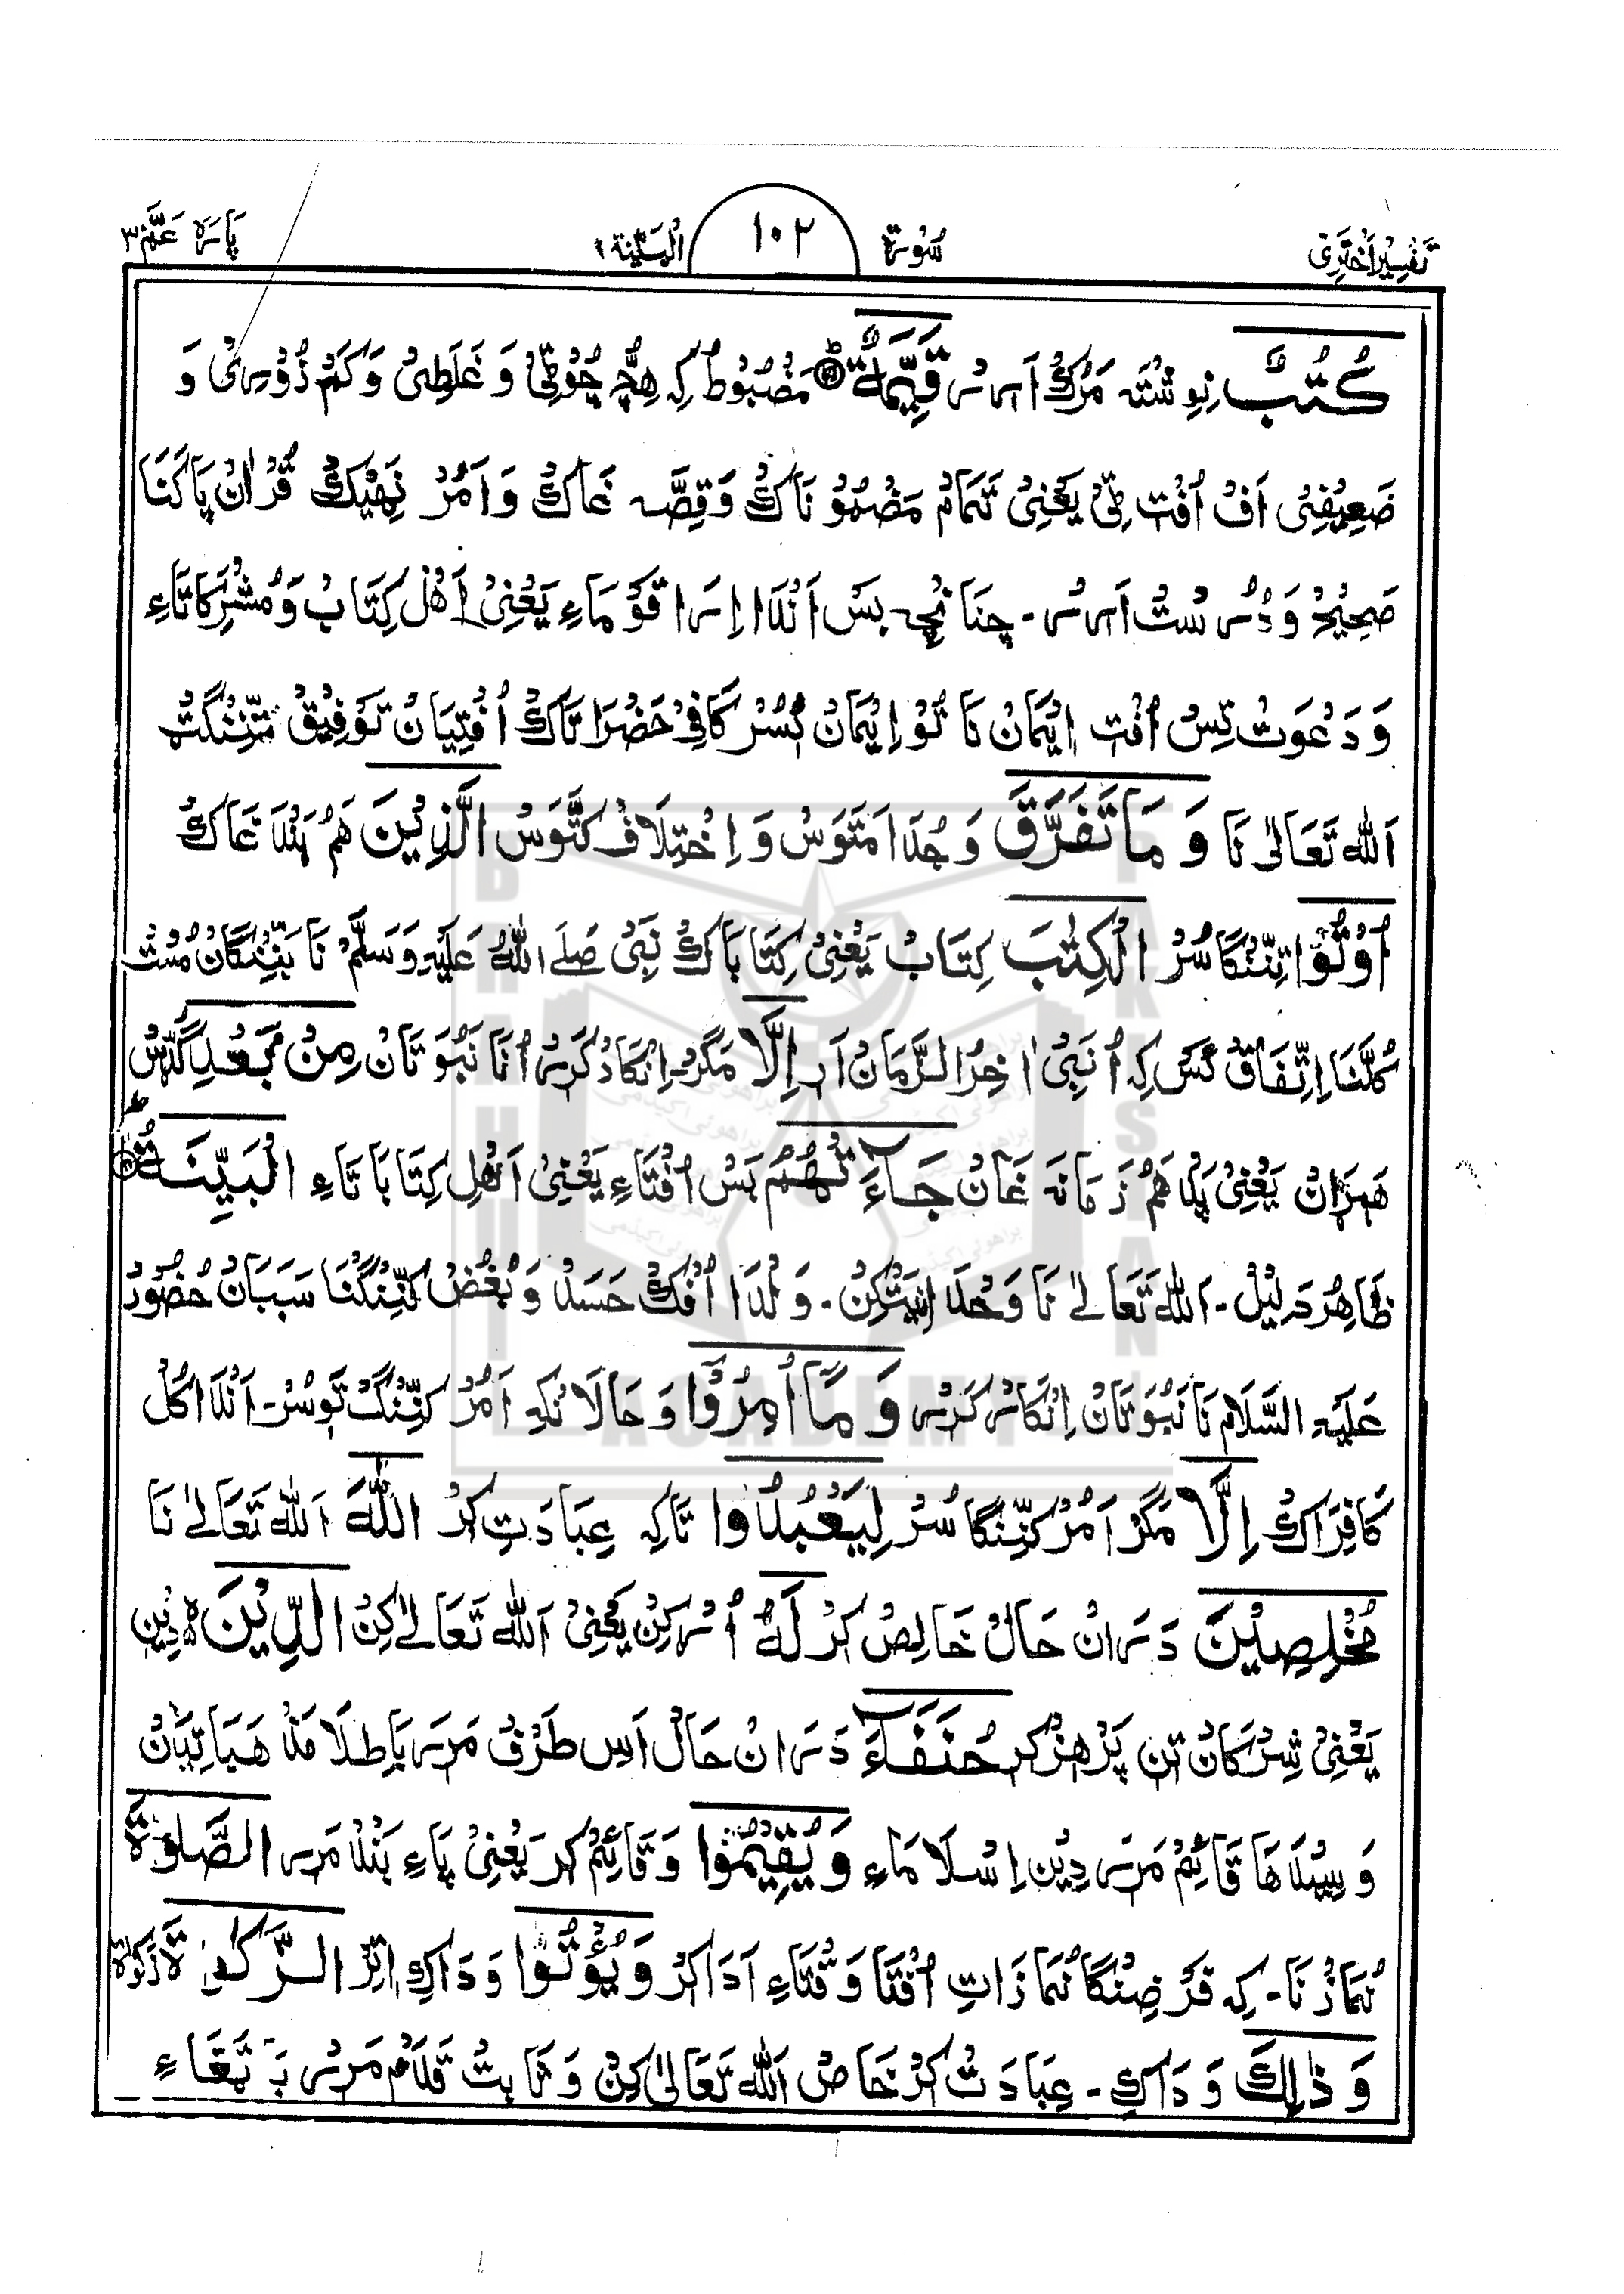 تَفسِیرِ اَختَرِی سُورَة ١٠٢ اَلۡبَیِّنَة پَارَہ عَمَّ ٣٠
كُتُبٌ نِوِشتَہ مَرُکْ اَرِر قَیِّمَةٌ مَضبُوطْ کِہ ھِچْ چُوٹِّی وَ غَلَطِیْ وَ کَمْ زُوْرِیْ وَ
ضَعِیْفِیْ اَفْ اُفْتِ ٹِیْ یَعْنِیْ تَمَامْ مَضْمُوْنَاکْ وَ قِصَّہ غَاکْ وَ اَمْرُ نَھْیْکْ قُرْاٰنْ پَاکْنَا
صَحِیْحْ وَ دُرُسْتْ اَرِر۔ چِنَانْچِہ بَسْ اَنْدَا اِرَا قَوْمَاءِ یَعْنِیْ اَھْلِ کِتَابْ وَ مُشْرِکَاتَاءِ
وَ دَعْوَتْ تِسْ اُفْتِ اِیْمَانْ نَا تَوْ اِیْمَانْ ھَسُرْ کَافِیْ حَضْرَاتَاکْ اُفْتِیَانْ تَوْفِیْقْ تِنِّنْگَتْ
اَللّٰہ تَعَالٰی نَا وَ مَا تَفَرَّقَ وَ جُدَا مَتَوَسْ وَ اِخْتِلَافْ کَتَّوَسْ الَّذِیۡنَ ھَمْ ھَنْدَ غَاکْ
اُوۡتُوا تِنِّنْگَاسُرْ الۡكِتٰبَ کِتَابْ یَعْنِیْ کِتَابَاکْ نَبِیْ صَلَے اللّٰہُ عَلَیْہِ وَسَلَّمْ نَا بَنِّنْگَانْ مُسْتْ
کُلَّنَا اِتِّفَاقْ ئَسْ کِہ اُ نَبِیْ اٰخِرُ الزَّمَانْ اَرِ اِلَّا مَگَرْ۔ اِنْکَارْ کَرِرْ اُنَا نَبُوَتَانْ مِنۢ بَعۡدِ گُڈّسْ
ھَمْرَانْ یَعْنِیْ پَدَ ھَمْ زَمَانَہ غَانْ جَآءَ تۡهُمُ بَسْ اُفْتَاءِ یَعْنِیْ اَھْلِ کِتَابَاتَاءِ الۡبَیِّنَةُ
ظَاھِرْ دَلِیْلْ۔ اَللّٰہ تَعَالٰے نَا وَحْدَانِیَتْ کِنْ۔ وَ لْدَا اُفْکْ حَسَدْ وَ بُغْضْ کَنِّنْگَنَا سَبَبَانْ حُضُوْرْ
عَلَیْہِ السَّلَامْ نَا نَبُوَتَانْ اِنْکَارْ کَرِرْ وَ مَاۤ اُمِرُوۡۤا وَ حَالَانْکِہ اَمْرُ کَنِّنْگَ تَوَسُرْ۔ اَنْدَا کُلْ
کَافِرَاکْ اِلَّا مَگَرْ اَمْرُ کَنِّنْگَاسُرْ لِیَعۡبُدُوا تَاکِہ عِبَادَتِ کِرْ اللّٰهَ اَللّٰہ تَعَالٰے نَا
مُخۡلِصِیۡنَ دَرِ انْ حَالْ خَالِصْ کَرْ لَهُ اُرْ کِنْ یَعْنِیْ اَللّٰہ تَعَالٰے کِنْ الدِّیۡنَ دِیْنِ
یَعْنِیْ شِرْکَانْ تِنِ پَرْھِزْ کِرِ حُنَفَآءَ دَرِ انْ حَالْ اَسِ طَرْفْ مَرِرَ بَاطِلَا مَذْھَبَاتِیَانْ
وَ سِیْدَھَا قَائِمْ مَرِرَ دِیْنِ اِسْلَامَاءِ وَ یُقِیۡمُوا وَ قَائِمْ کِرِ یَعْنِیْ پَاءِ بَنْدْ مَرِر الصَّلٰوةَ
نُمَازْ نَا۔ کِہ فَرْضِنْگَا نُمَازَاتِ اُفْتَا وَقْتَاءِ اَدَا کِرْ وَ یُؤۡتُوا وَ دَاکِ اِتِرْ الزَّكٰوةَ زَکٰوۃ
وَ ذٰلِكَ وَ دَاکِ۔ عِبَادَتْ کِرْ خَاصْ اَللّٰہ تَعَالٰی کِنْ وَ ثَابِتْ قَدَمْ مَرِر